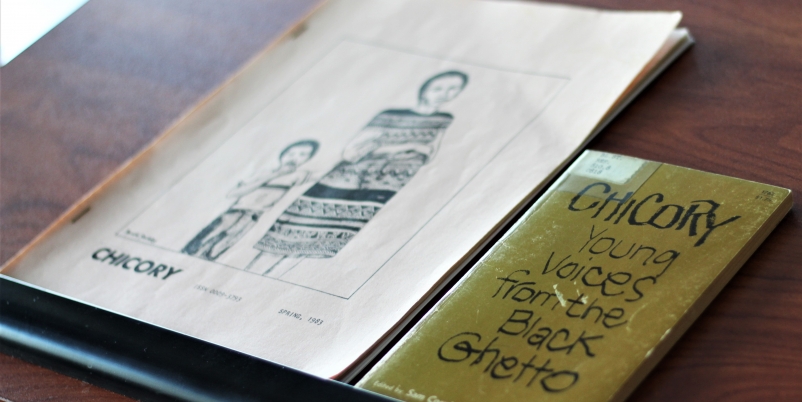 CHICORY
SPRING, 1983
CHICORY
Young
Voices
from the
Black
Ghetto
Edited by Sam